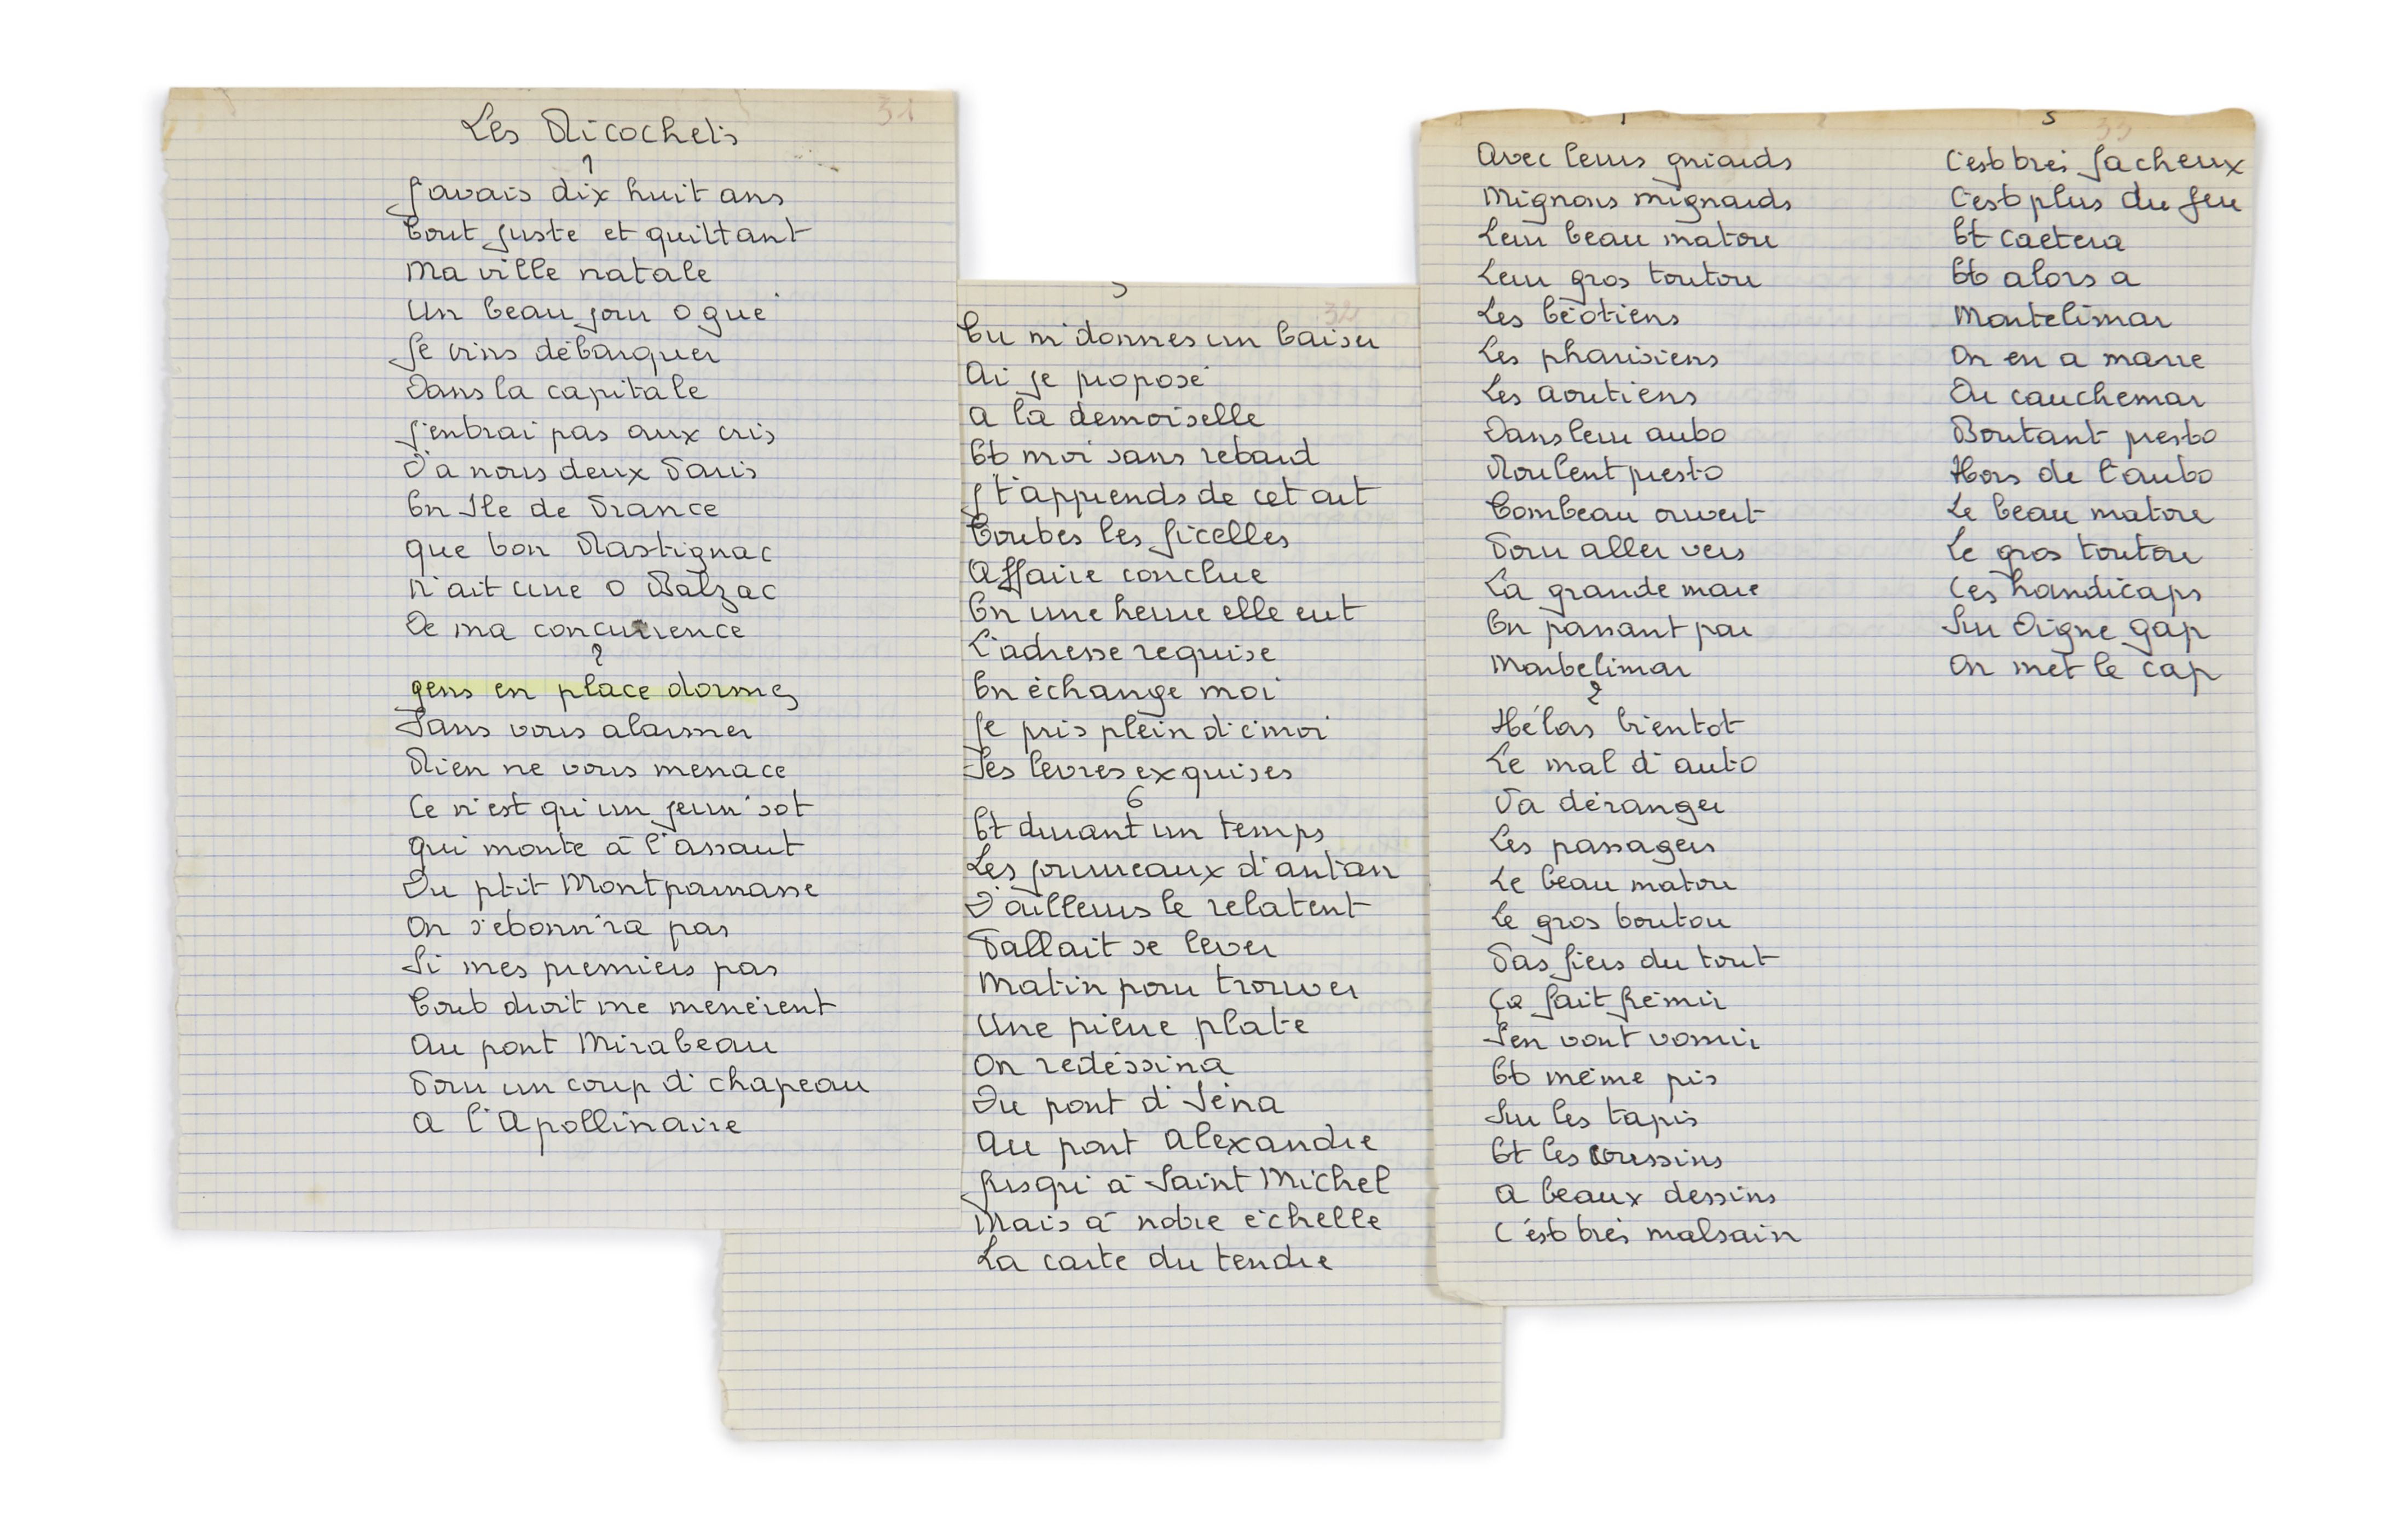 31
Les Ricochets
1
J'avais dix huit ans
Tout juste et quittant
Ma ville natale
Un beau jour o gué
Je vins débarquer
Dans la capitale
J'entrai pas aux cris
D'a nous deux Paris
En Ile de France
que bon Rastignac
N'ait cure o Balzac
De ma concurrence
2
gens en place dormez
Sans vous alarmer
Rien ne vous menace
Ce n'est qu'un jeun'sot
qui monte à l'assaut
Du ptit Montparnasse
On s'étonn'ra pas
Si mes premiers pas
Tout droit me menèrent
Au pont Mirabeau
Pour un coup d'chapeau
A l'Apollinaire
5
32
Tu m'donnes un baiser
Ai je proposé
A la demoiselle
Et moi sans retard
J t'apprends de cet art
Toutes les ficelles
Affaire conclue
En une heure elle eut
L'adresse requise
En échange moi
Je pris plein d'émoi
Ses levres exquises
6
Et durant un temps
Les journeaux d'antan
D'ailleurs le relatent
Fallait se lever
Matin pour trouver
Une pierre plate
On redéssina
Du pont d'Iéna
Au pont Alexandre
Jusqu'à Saint Michel
Mais à notre échelle
La carte du tendre
1
Avec leurs griards
Mignons mignards
Leur beau matou
Leur gros toutou
Les béotiens
Les pharisiens
Les aoutiens
Dans leur auto
Roulent presto
Tombeau ouvert
Pour aller vers
La grande mare
En passant par
Montelimar
2
Hélas bientot
Le mal d'auto
Va déranger
Les passagers
Le beau matou
Le gros toutou
Pas fiers du tout
Ça fait frémir
S'en vont vomir
Et même pis
Sur les tapis
Et les coussins
A beaux dessins
C'est très malsain
3
33
C'est très facheux
C'est plus du jeu
Et caetera
Et alors a
Montelimar
On en a marre
Du cauchemar
Boutant presto
Hors de l'auto
Le beau matou
Le gros toutou
Ces handicaps
Sur Digne gap
On met le cap